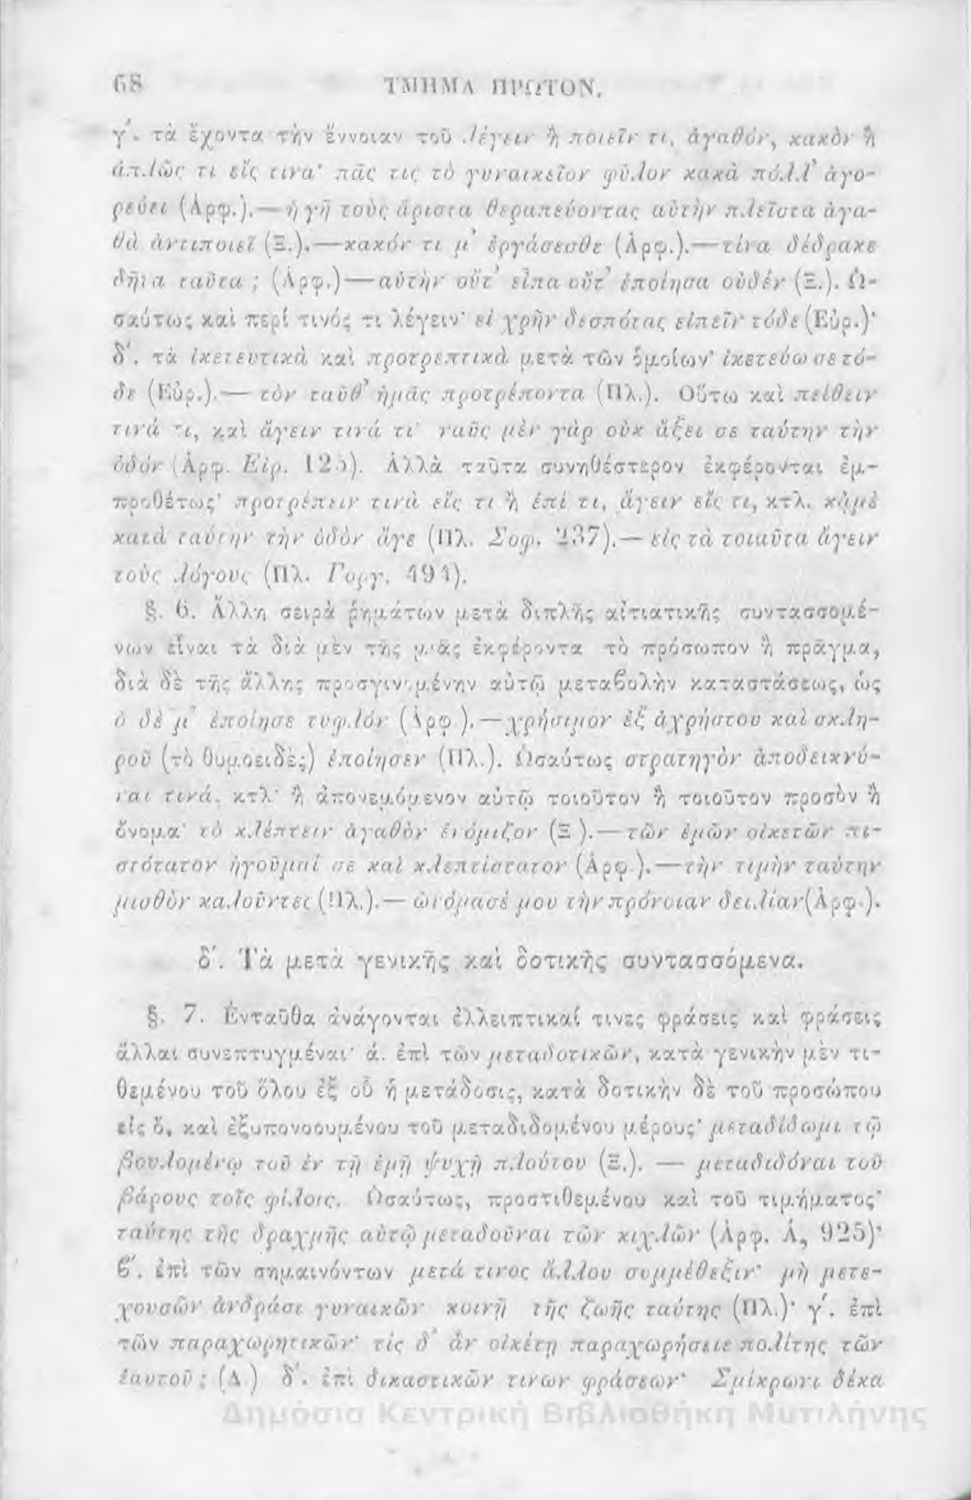 68 ΤΜΗΜΑ ΠΡΩΤΟΝ.
γ΄. τὰ ἔχοντα τὴν ἔννοιαν τοῦ λέγειν ἢ ποιεῖν τι, ἀγαθόν, κακὸν ἢ
ἁπλῶς τι εἴς τινα· πᾶς τις τὸ γυναικεῖον φῦλον κακὰ πόλλ' ἀγο-
ρεύει (Ἀρφ.).— ἡ γῆ τοὺς ἄριστα θεραπεύοντας αὐτὴν πλεῖστα ἀγα-
θὰ ἀντιποιεῖ (Ξ.).—κακόν τι μ' ἐργάσεσθε (Ἀρφ.).—τίνα δέδρακε
δῆτα ταῦτα ; (Ἀρφ.)—αὐτὴν οὔτ' εἶπα οὔτ' ἐποίησα οὐδέν (Ξ.). Ὡ-
σαύτως καὶ περί τινός τι λέγειν· εἰ χρῆν δεσπότας εἰπεῖν τόδε (Εὐρ.)·
δ΄. τὰ ἱκετευτικὰ καὶ προτρεπτικὰ μετὰ τῶν ὁμοίων· ἱκετεύω σε τό-
δε (Εὐρ.).— τὸν ταῦθ' ἡμᾶς προτρέποντα (Πλ.). Οὕτω καὶ πείθειν
τινά τι, καὶ ἄγειν τινά τι· ναῦς μὲν γὰρ οὐκ ἄξει σε ταύτην τὴν
ὁδόν (Ἀρφ. Εἰρ. 125). Ἀλλὰ ταῦτα συνηθέστερον ἐκφέρονται ἐμ-
προθέτως· προτρέπειν τινὰ εἴς τι ἢ ἐπί τι, ἄγειν εἴς τι, κτλ. κἀμὲ
κατὰ ταύτην τὴν ὁδὸν ἄγε (Πλ. Σοφ. 237).— εἰς τὰ τοιαῦτα ἄγειν
τοὺς λόγους (Πλ. Γοργ. 494).
§. 6. Ἄλλη σειρὰ ῥημάτων μετὰ διπλῆς αἰτιατικῆς συντασσομέ-
νων εἶναι τὰ διὰ μὲν τῆς μιᾶς ἐκφέροντα τὸ πρόσωπον ἢ πρᾶγμα,
διὰ δὲ τῆς ἄλλης προσγινομένην αὐτῷ μεταβολὴν καταστάσεως, ὡς
ὁ δέ μ' ἐποίησε τυφλόν (Ἀρφ.).—χρήσιμον ἐξ ἀχρήστου καὶ σκλη-
ροῦ (τὸ θυμοειδὲς) ἐποίησεν (Πλ.). Ὡσαύτως στρατηγὸν ἀποδεικνύ-
ναι τινά, κτλ· ἢ ἀπονεμόμενον αὐτῷ τοιοῦτον ἢ τοιοῦτον προσὸν ἢ
ὄνομα· τὸ κλέπτειν ἀγαθὸν ἐνόμιζον (Ξ.).—τῶν ἐμῶν οἰκετῶν πι-
στότατον ἡγοῦμαί σε καὶ κλεπτίστατον (Ἀρφ.).—τὴν τιμὴν ταύτην
μισθὸν καλοῦντες (Πλ.).— ὠνόμασέ μου τὴν πρόνοιαν δειλίαν (Ἀρφ.).
δ΄. Τὰ μετὰ γενικῆς καὶ δοτικῆς συντασσόμενα.
§. 7. Ἐνταῦθα ἀνάγονται ἐλλειπτικαί τινες φράσεις καὶ φράσεις
ἄλλαι συνεπτυγμέναι· ά. ἐπὶ τῶν μεταδοτικῶν, κατὰ γενικὴν μὲν τι-
θεμένου τοῦ ὅλου ἐξ οὗ ἡ μετάδοσις, κατὰ δοτικὴν δὲ τοῦ προσώπου
εἰς ὅ, καὶ ἐξυπονοουμένου τοῦ μεταδιδομένου μέρους· μεταδίδωμι τῷ
βουλομένῳ τοῦ ἐν τῇ ἐμῇ ψυχῇ πλούτου (Ξ.). — μεταδιδόναι τοῦ
βάρους τοῖς φίλοις. Ὡσαύτως, προστιθεμένου καὶ τοῦ τιμήματος·
ταύτης τῆς δραχμῆς αὐτῷ μεταδοῦναι τῶν κιχλῶν (Ἀρφ. Ἀ, 925)·
ϐ΄. ἐπὶ τῶν σημαινόντων μετά τινος ἄλλου συμμέθεξιν· μὴ μετε-
χουσῶν ἀνδράσι γυναικῶν κοινῇ τῆς ζωῆς ταύτης (Πλ.)· γ΄. ἐπὶ
τῶν παραχωρητικῶν· τίς δ' ἂν οἰκέτῃ παραχωρήσειε πολίτης τῶν
ἑαυτοῦ ; (Δ.) δ΄. ἐπὶ δικαστικῶν τινων φράσεων· Σμίκρωνι δέκα
Δημόσια Κεντρική Βιβλιοθήκη Μυτιλήνης